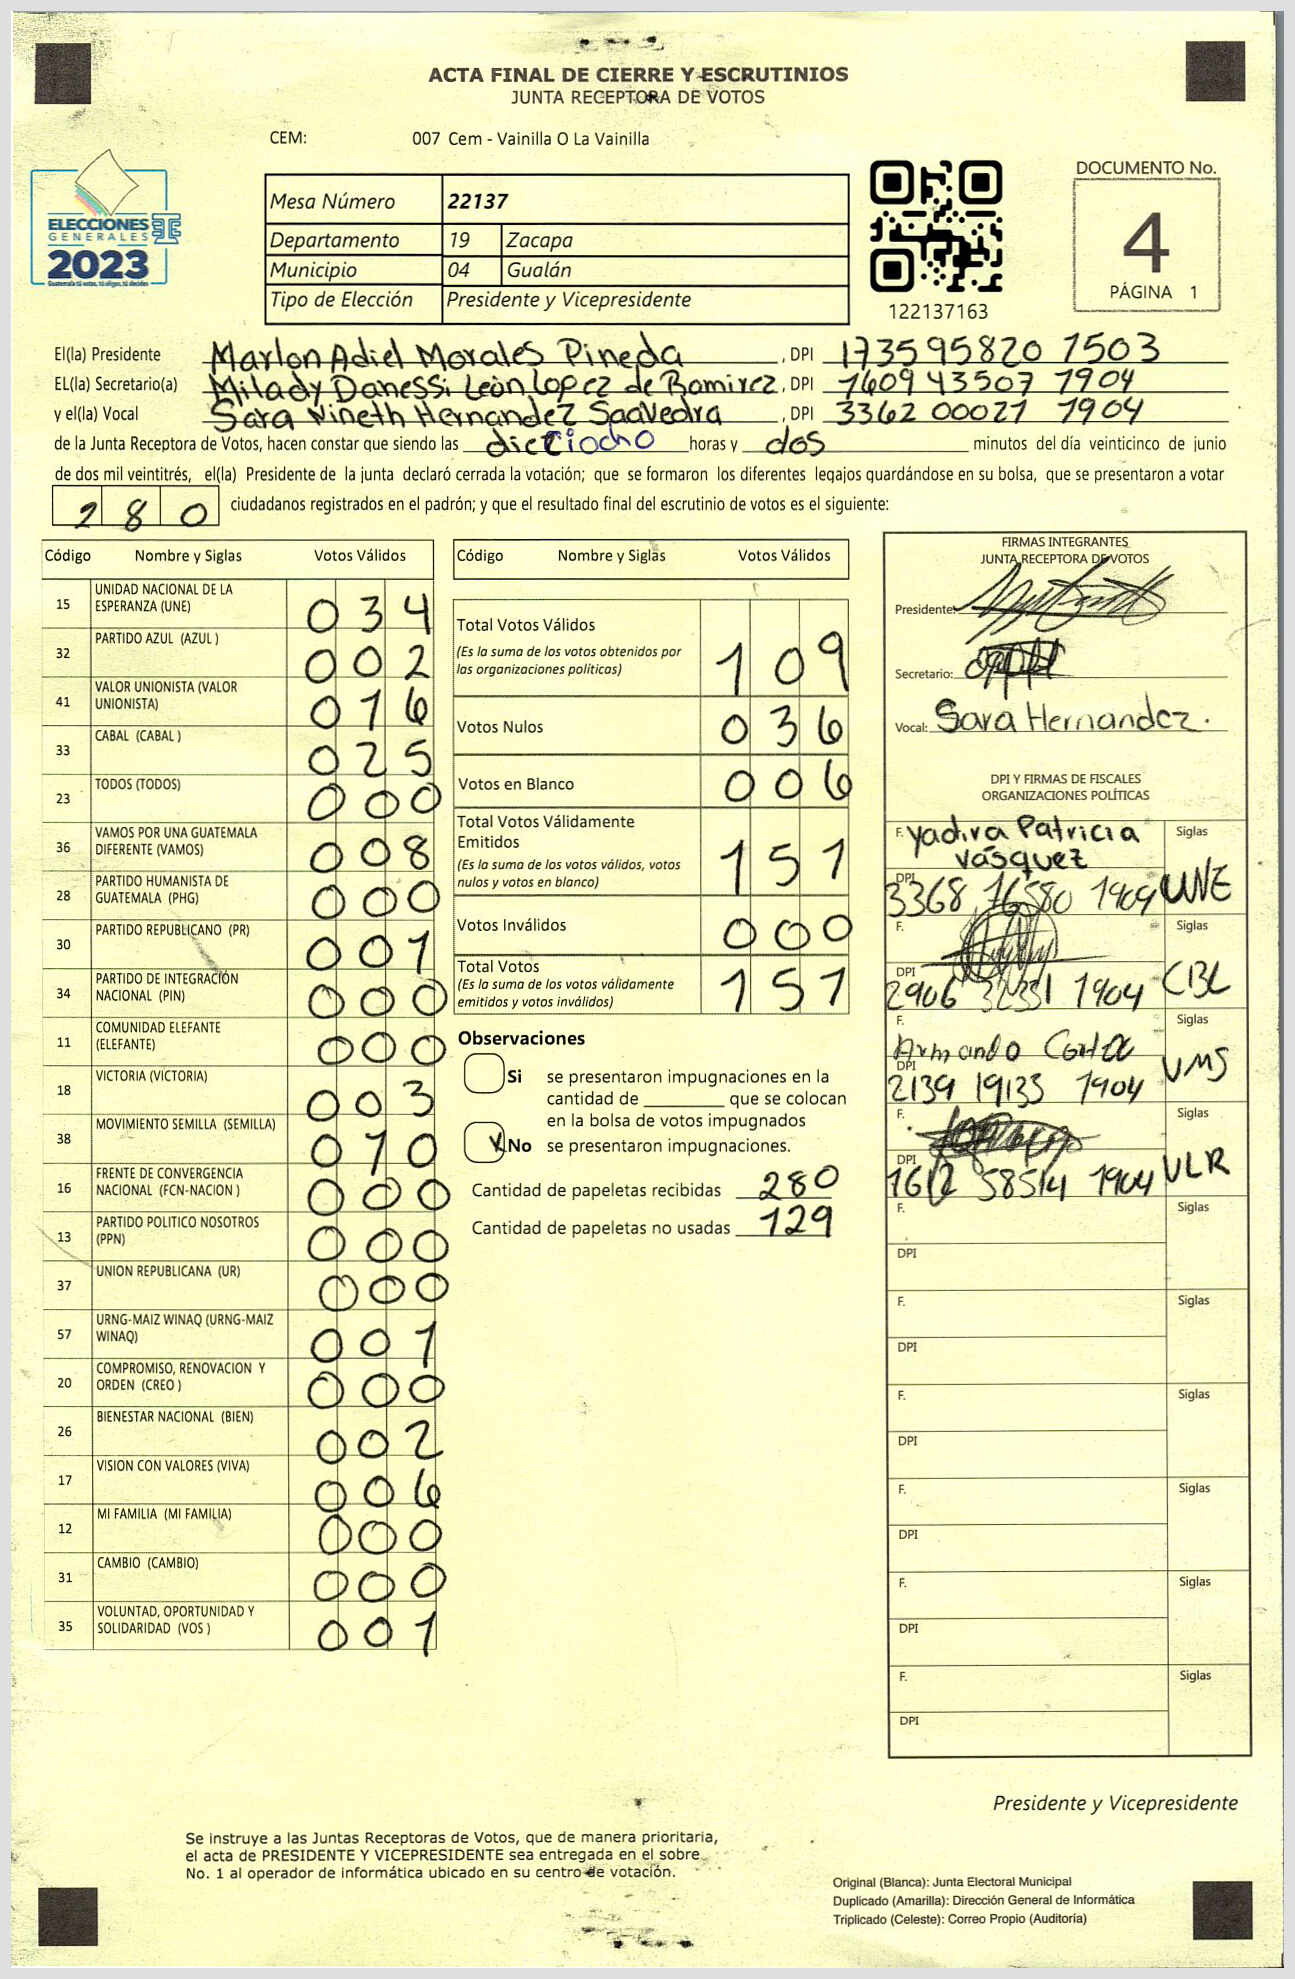 ACTA FINAL DE CIERRE Y ESCRUTINIOS
JUNTA RECEPTORA DE VOTOS
CEM: 007 Cem - Vainilla O La Vainilla
ELECCIONES
GENERALES
2023
Guatemala tú votas, tú eliges, tú decides
Mesa Número 22137
Departamento 19 Zacapa
Municipio 04 Gualán
Tipo de Elección Presidente y Vicepresidente
122137163
DOCUMENTO No.
4
PÁGINA 1
El(la) Presidente Marlon Adiel Morales Pineda, DPI 173595820 1503
EL(la) Secretario(a) Milady Danessi Leòn Lopez de Ramirez, DPI 1609 43507 1904
y el(la) Vocal Sara Vineth Hernandez Saavedra, DPI 3362 00021 1904
de la Junta Receptora de Votos, hacen constar que siendo las dieciocho horas y dos minutos del día veinticinco de junio
de dos mil veintitrés, el(la) Presidente de la junta declaró cerrada la votación; que se formaron los diferentes legajos quardándose en su bolsa, que se presentaron a votar
280 ciudadanos registrados en el padrón; y que el resultado final del escrutinio de votos es el siguiente:
Código Nombre y Siglas Votos Válidos
15 UNIDAD NACIONAL DE LA ESPERANZA (UNE) 034
32 PARTIDO AZUL (AZUL ) 002
41 VALOR UNIONISTA (VALOR UNIONISTA) 016
33 CABAL (CABAL ) 025
23 TODOS (TODOS) 000
36 VAMOS POR UNA GUATEMALA DIFERENTE (VAMOS) 008
28 PARTIDO HUMANISTA DE GUATEMALA (PHG) 000
30 PARTIDO REPUBLICANO (PR) 001
34 PARTIDO DE INTEGRACIÓN NACIONAL (PIN) 000
11 COMUNIDAD ELEFANTE (ELEFANTE) 000
18 VICTORIA (VICTORIA) 003
38 MOVIMIENTO SEMILLA (SEMILLA) 010
16 FRENTE DE CONVERGENCIA NACIONAL (FCN-NACION ) 000
13 PARTIDO POLITICO NOSOTROS (PPN) 000
37 UNION REPUBLICANA (UR) 000
57 URNG-MAIZ WINAQ (URNG-MAIZ WINAQ) 001
20 COMPROMISO, RENOVACION Y ORDEN (CREO ) 000
26 BIENESTAR NACIONAL (BIEN) 002
17 VISION CON VALORES (VIVA) 006
12 MI FAMILIA (MI FAMILIA) 000
31 CAMBIO (CAMBIO) 000
35 VOLUNTAD, OPORTUNIDAD Y SOLIDARIDAD (VOS ) 001
Código Nombre y Siglas Votos Válidos
Total Votos Válidos 109
(Es la suma de los votos obtenidos por
las organizaciones políticas)
Votos Nulos 036
Votos en Blanco 006
Total Votos Válidamente
Emitidos 151
(Es la suma de los votos válidos, votos
nulos y votos en blanco)
Votos Inválidos 000
Total Votos 151
(Es la suma de los votos válidamente
emitidos y votos inválidos)
Observaciones
Si se presentaron impugnaciones en la
cantidad de ________ que se colocan
en la bolsa de votos impugnados
No se presentaron impugnaciones.
Cantidad de papeletas recibidas 280
Cantidad de papeletas no usadas 129
FIRMAS INTEGRANTES
JUNTA RECEPTORA DE VOTOS
Presidente:
Secretario:
Vocal: Sara Hernandez.
DPI Y FIRMAS DE FISCALES
ORGANIZACIONES POLÍTICAS
F. Yadira Patricia Vásquez Siglas
DPI 3368 76580 1904 UNE
F. Siglas
DPI 2906 32351 1904 CBL
F. Armando Siglas
DPI 2139 19133 1904 VMS
F. Siglas
DPI 1612 58514 1904 VLR
F. Siglas
DPI
F. Siglas
DPI
F. Siglas
DPI
F. Siglas
DPI
F. Siglas
DPI
F. Siglas
DPI
Presidente y Vicepresidente
Se instruye a las Juntas Receptoras de Votos, que de manera prioritaria,
el acta de PRESIDENTE Y VICEPRESIDENTE sea entregada en el sobre
No. 1 al operador de informática ubicado en su centro de votación.
Original (Blanca): Junta Electoral Municipal
Duplicado (Amarilla): Dirección General de Informática
Triplicado (Celeste): Correo Propio (Auditoría)